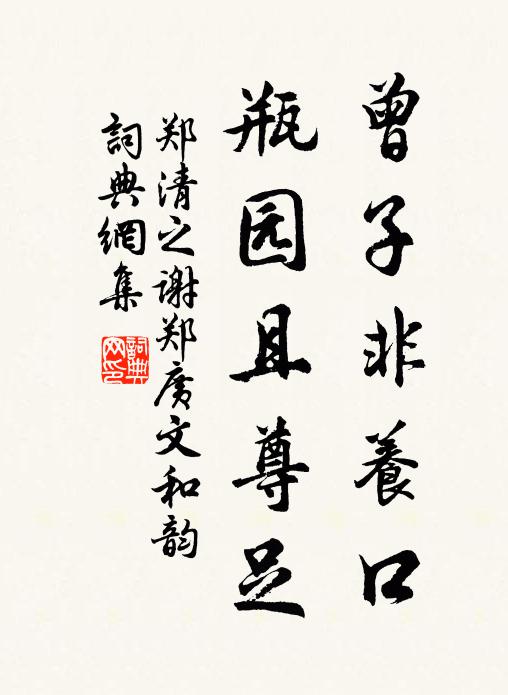 曾子非養口
瓶园且尊足
郑清之谢郑廣文和韵
詞典網集
詞典
网印